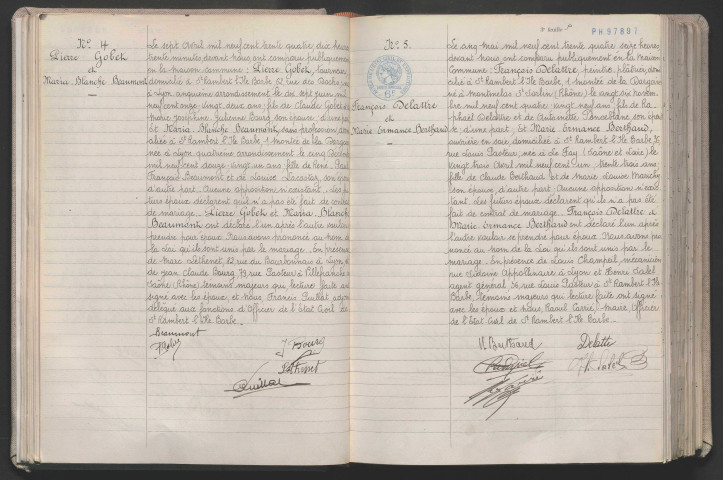 Nº 4
Pierre Gobet
et
Maria Blanche Beaumont
Le sept Avril mil neuf cent trente quatre, dix heures
trente minutes, devant nous, ont comparu publiquement
en la maison commune : Pierre Gobet, tourneur,
domicilié à St Rambert l'Ile Barbe, rue des
à Lyon cinquième arrondissement le dix sept juin mil
neuf cent onze, vingt deux ans, fils de Claude Gobet et de
Marie Joséphine Julienne Bourg, son épouse, d'une part
Et Maria Blanche Beaumont, sans profession, domi-
ciliée à St Rambert l'Ile Barbe, 1 montée de la
née à Lyon quatrième arrondissement le cinq
mil neuf cent douze, vingt un ans, fille de René
François Beaumont et de Lacostas, son épouse
d'autre part. Aucune opposition n'existant. Les fu-
turs époux déclarent qu'il n'a pas été fait de contrat
de mariage. Pierre Gobet et Maria Blanche
Beaumont ont déclaré l'un après l'autre vouloir se
prendre pour époux. Nous avons prononcé au nom de
la Loi qu'ils sont unis par le mariage. En présence
de Marc Lethenet, 82, rue du Bourbonnais à Lyon et
de Jean Claude Bourg, 79, rue Pasteur à Villefranche s/
Saône (Rhône) témoins majeurs qui, lecture faite ont
signé avec les époux et Nous, Francis Guillot
délégué aux fonctions d'Officier de l'Etat Civil de
St Rambert l'Ile Barbe.
Beaumont
Gobet
J Bourg
Lethenet
Guillot
PH97807
Nº 5.
François Delattre
et
Marie Ermance Berthaud
Le cinq Mai mil neuf cent trente quatre, seize heures,
devant nous ont comparu publiquement en la Maison
Commune : François Delattre, peintre, plâtrier, domi-
cilié à St Rambert l'Ile Barbe, 1 montée de la
né à Montmelas St Sorlin (Rhône) le vingt six novem-
bre mil neuf cent quatre, vingt neuf ans, fils de Ra-
phaël Delattre et de Antoinette, son épou-
se, d'une part. Et Marie Ermance Berthaud,
ouvrière en soie, domiciliée à St Rambert l'Ile Barbe
rue Louis Pasteur, née à Le Fay (Saône et Loire) le
vingt trois Avril mil neuf cent un, trente trois ans,
fille de Claude Berthaud et de Marie Louise
son épouse, d'autre part. Aucune opposition n'exis-
tant. Les futurs époux déclarent qu'il n'a pas été
fait de contrat de mariage. François Delattre et
Marie Ermance Berthaud ont déclaré l'un après
l'autre vouloir se prendre pour époux. Nous avons pro-
noncé au nom de la Loi qu'ils sont unis par le
mariage. En présence de Louis Champeil, mécanicien
rue Sidoine Appollinaire à Lyon et Henri Salet
agent général, rue Louis Pasteur à St Rambert l'Ile
Barbe, témoins majeurs qui, lecture faite ont signé
avec les époux et Nous, Raoul Carrié, Maire, Officier
de l'Etat Civil de St Rambert l'Ile Barbe.
M Berthaud
Delattre